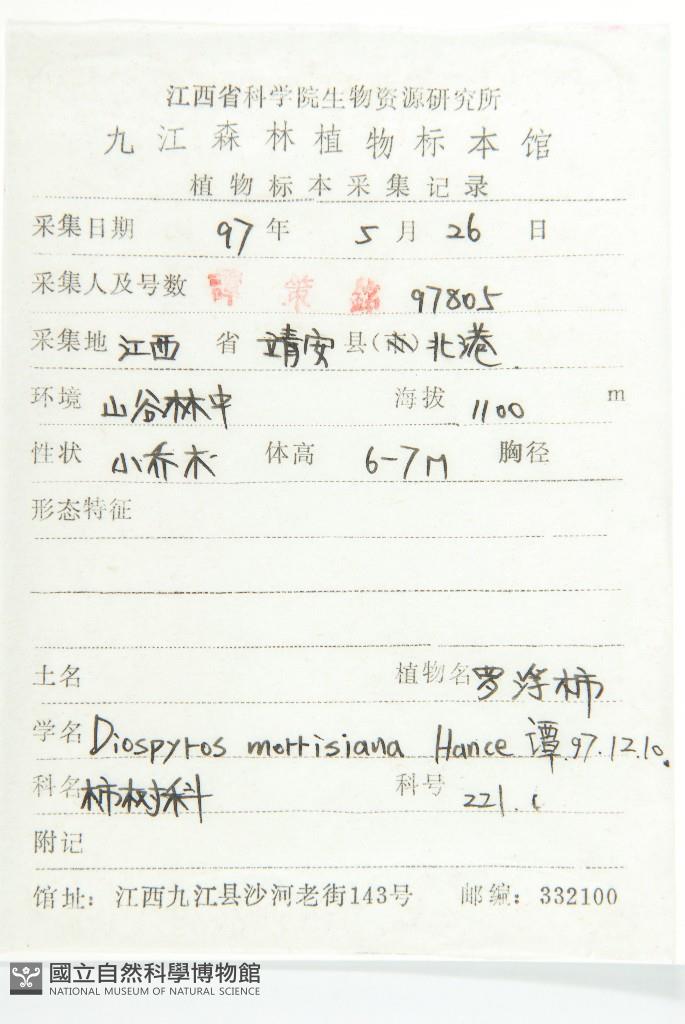 江西省科学院生物资源研究所
九江森林植物标本馆
植物标本采集记录
采集日期 97 年 5 月 26 日
采集人及号数 谭 策 铭 97805
采集地 江西 省 靖安 县(市) 北港
环境 山谷林中 海拔 1100 m
性状 小乔木 体高 6-7M 胸径
形态特征
土名 植物名 罗浮柿
学名 Diospyros morrisiana Hance 谭.97.12.10.
科名 柿树科 科号 221.
附记
馆址：江西九江县沙河老街143号 邮编：332100
國立自然科學博物館
NATIONAL MUSEUM OF NATURAL SCIENCE